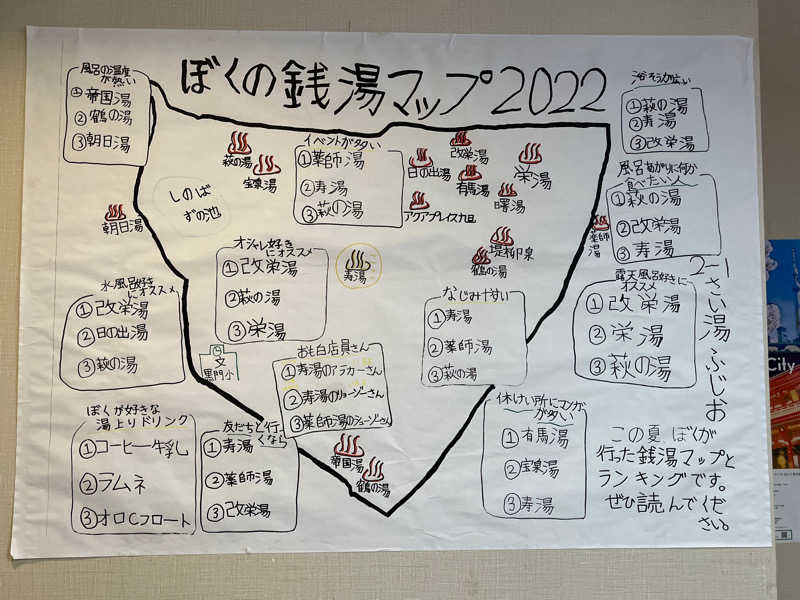 ぼくの銭湯マップ2022
風呂の温度
が熱い
①帝国湯
②鶴の湯
③朝日湯
萩の湯
宝泉湯
イベントが多い
①薬師湯
②寿湯
③萩の湯
日の出湯
改栄湯
有馬湯
栄湯
曙湯
アクアプレイス旭
浴そうが広い
①萩の湯
②寿湯
③改栄湯
風呂あがりに何か
食べたい人
①萩の湯
②改栄湯
③寿湯
しのば
ずの池
朝日湯
薬師
湯
堤柳泉
鶴の湯
オシャレ好き
にオススメ
①改栄湯
②萩の湯
③栄湯
寿湯
水風呂好き
にオススメ
①改栄湯
②日の出湯
③萩の湯
なじみやすい
①寿湯
②薬師湯
③萩の湯
露天風呂好きに
オススメ
①改栄湯
②栄湯
③萩の湯
2-1
さい湯ふじお
文
黒門小
おも白店員さん
①寿湯のアラカーさん
②寿湯のリョージーさん
③薬師湯のショージーさん
ぼくが好きな
湯上りドリンク
①コーヒー牛乳
②ラムネ
③オロCフロート
友だちと行
くなら
①寿湯
②薬師湯
③改栄湯
帝国湯
鶴の湯
休けい所にマンガ
が多い
①有馬湯
②宝泉湯
③寿湯
この夏、ぼくが
行った銭湯マップと
ランキングです。
ぜひ読んでくだ
さい。
City